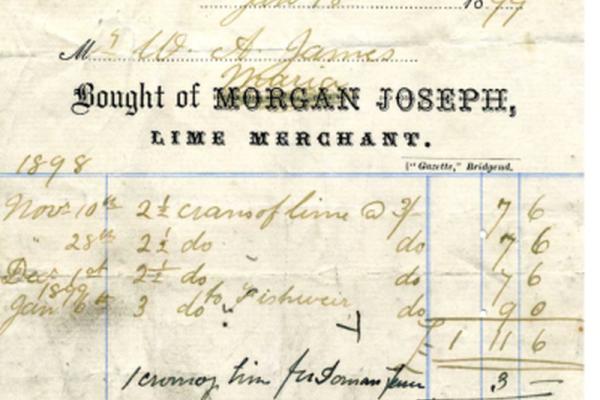 Jan 18 1899
Mr W. A. James
Maria
Bought of MORGAN JOSEPH,
LIME MERCHANT.
("Gazette," Bridgend.
1898
Novr 10th 2½ crans of lime @ 3/- 7 6
" 28th 2½ do do 7 6
Decr 1st 2½ do do 7 6
1899
Jan 6th 3 do to Fishweir do 9 0
£ 1 11 6
1 lime for 3 —